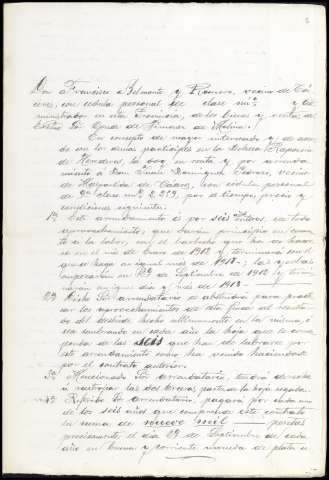 Don Francisco Belmonte y Romero, vecino de Cá-
ceres, con cédula personal de clase y ad-
ministrador en esta Provincia, de los bienes y rentas del
Excmo Sr. Conde de de Molina.
En concepto de mayor interesado y de acuer-
do con los demas partícipes en la Dehesa
de Hondras, la doy en renta y por arrenda-
miento á Don Juan Dominguez vecino
de Malpartida de Cáceres, con cédula personal
de 9ª clase nº 2.229, por el tiempo, precio y
condiciones siguientes:
1ª Este arrendamiento es por seis años en todo
aprovechamiento, que darán principio en cuan-
to á la labor, con el barbecho que ha de hacer-
se en el mes de Enero de 1912 y terminará con el
que se haga en igual mes de 1918, y las yerbas
empezarán en 29 de Septiembre de 1912 y termi-
narán en igual dia y mes de 1918.
2ª Dicho Sr. arrendatario se obliga para practi-
car los aprovechamientos de esta finca al resulta-
do del deslinde hecho ultimamente de la misma, é
irá sembrando en cada año la hoja que le corres-
ponda de las seis que han de labrarse por
este arrendamiento como ha venido haciéndose
por el contrato anterior.
3ª Mencionado Sr. arrendatario, tendrá derecho
á participar las dos terceras partes de la hoja
4ª Referido Sr. arrendatario, pagará por cada uno
de los seis años que comprende este contrato
la suma de nueve mil pesetas
precisamente el dia 29 de Septiembre de cada
año en buena y corriente moneda de plata ú